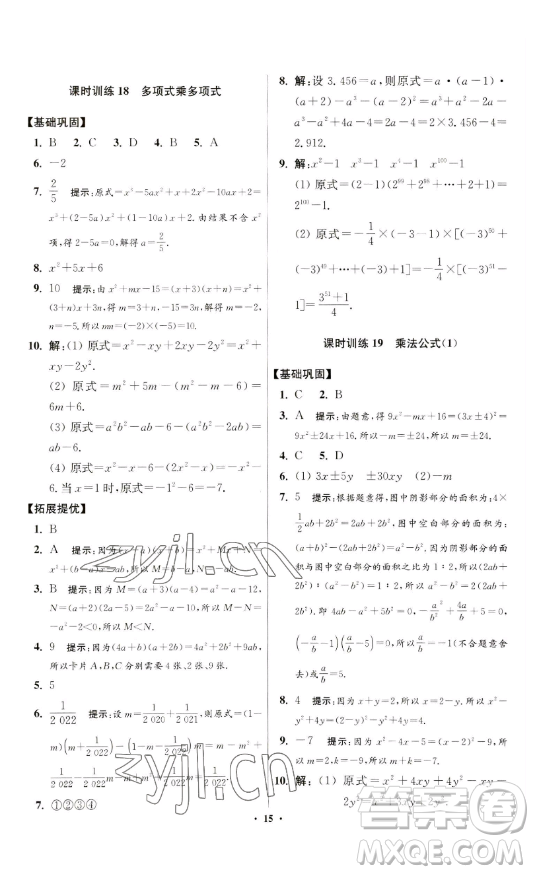 课时训练 18 多项式乘多项式
【基础巩固】
1. B 2. C 3. D 4. B 5. A
6. −2
7. 2/5 提示：原式=x³−5ax²+x+2x²−10ax+2=
x³+(2−5a)x²+(1−10a)x+2. 由结果不含x²
项，得 2−5a=0，解得 a=2/5.
8. x²+5x+6
9. 10 提示：由 x²+mx−15=(x+3)(x+n)=x²+
(3+n)x+3n，解得 m=3+n，−15=3n，解得 m=−2，
n=−5. 所以 mn=(−2)×(−5)=10.
10. 解：(1) 原式=x²−xy+2xy−2y²=x²+
xy−2y².
(2) 原式=m²+5m−(m²−m−6)=
6m+6.
(3) 原式=a²b²−ab−6−(a²b²−2ab)=
ab−6.
(4) 原式=x²−x−6−(2x²−x)=−x²−
6. 当 x=1时，原式=−1²−6=−7.
【拓展提优】
1. B
2. A 提示：因为(x+a)(x+b)=x²+Mx+N=
x²+(b+a)x+ab，
3. B 提示：因为 M=(a+3)(a−4)=a²−a−12，
N=(a+2)(2a−5)=2a²−a−10，所以 M−N=
−a²−2<0，所以 M<N.
4. 9 提示：因为(4a+b)(a+2b)=4a²+2b²+9ab，
所以卡片 A,B,C 分别需要 4 张、2 张、9 张.
5. 5
6. 1/2 022 提示：设 m=1/2 020+1/2 021，则原式=(1−
m)(m+1/2 022)−(1−m−1/2 022)m=m+
1/2 022−m²−1/2 022m−m+m²+1/2 022m=
1/2 022.
7. ①②③④
8. 解：设 3.456=a，则原式=a·(a−1)·
(a+2)−a²−(a−1)²=a³+a²−2a−
a³−a²+4a−2a=2a=2×3.456−4=
2.912.
9. 解：x²−1 x³−1 x⁴−1 x¹⁰⁰−1
(1) 原式=(2−1)(2⁹⁹+2⁹⁸+…+2+1)=
2¹⁰⁰−1.
(2) 原式=−1/4×(−3−1)×[(−3)⁵⁰+
(−3)⁴⁹+…+(−3)+1]=−1/4×[(−3)⁵¹−
1]=(3⁵¹+1)/4.
课时训练 19 乘法公式(1)
【基础巩固】
1. C 2. B
3. A 提示：由题意，得 9x²−mx+16=(3x±4)²=
9x²±24x+16. 所以−m=±24. 所以 m=±24.
4. D 5. C
6. (1) 3x±5y ±30xy (2) −m
7. 5 提示：根据题意，图中阴影部分的面积为：4×
1/2ab+2b²=2ab+2b²，图中空白部分的面积为：
(a+b)²−(2ab+2b²)=a²−b². 因为图中阴影部
分的面积与图中空白部分的面积之比为 1:2，所以
(2ab+2b²):(a²−b²)=1:2，所以 a²−b²=4ab+
4b²，即 4ab−a²+5b²=0，所以−a²/b²+4a/b+5=0，
即−(a/b+1)(a/b−5)=0，所以 a/b=−1(不合题意舍
去)或 a/b=5.
8. 4
9. −7
10. 解：(1) 原式=x²+4xy+4y²−xy−
2y²=x²+3xy+2y².
• 15 •
zyjl.cn
zyjl.cn
答案圈
MXQE.COM